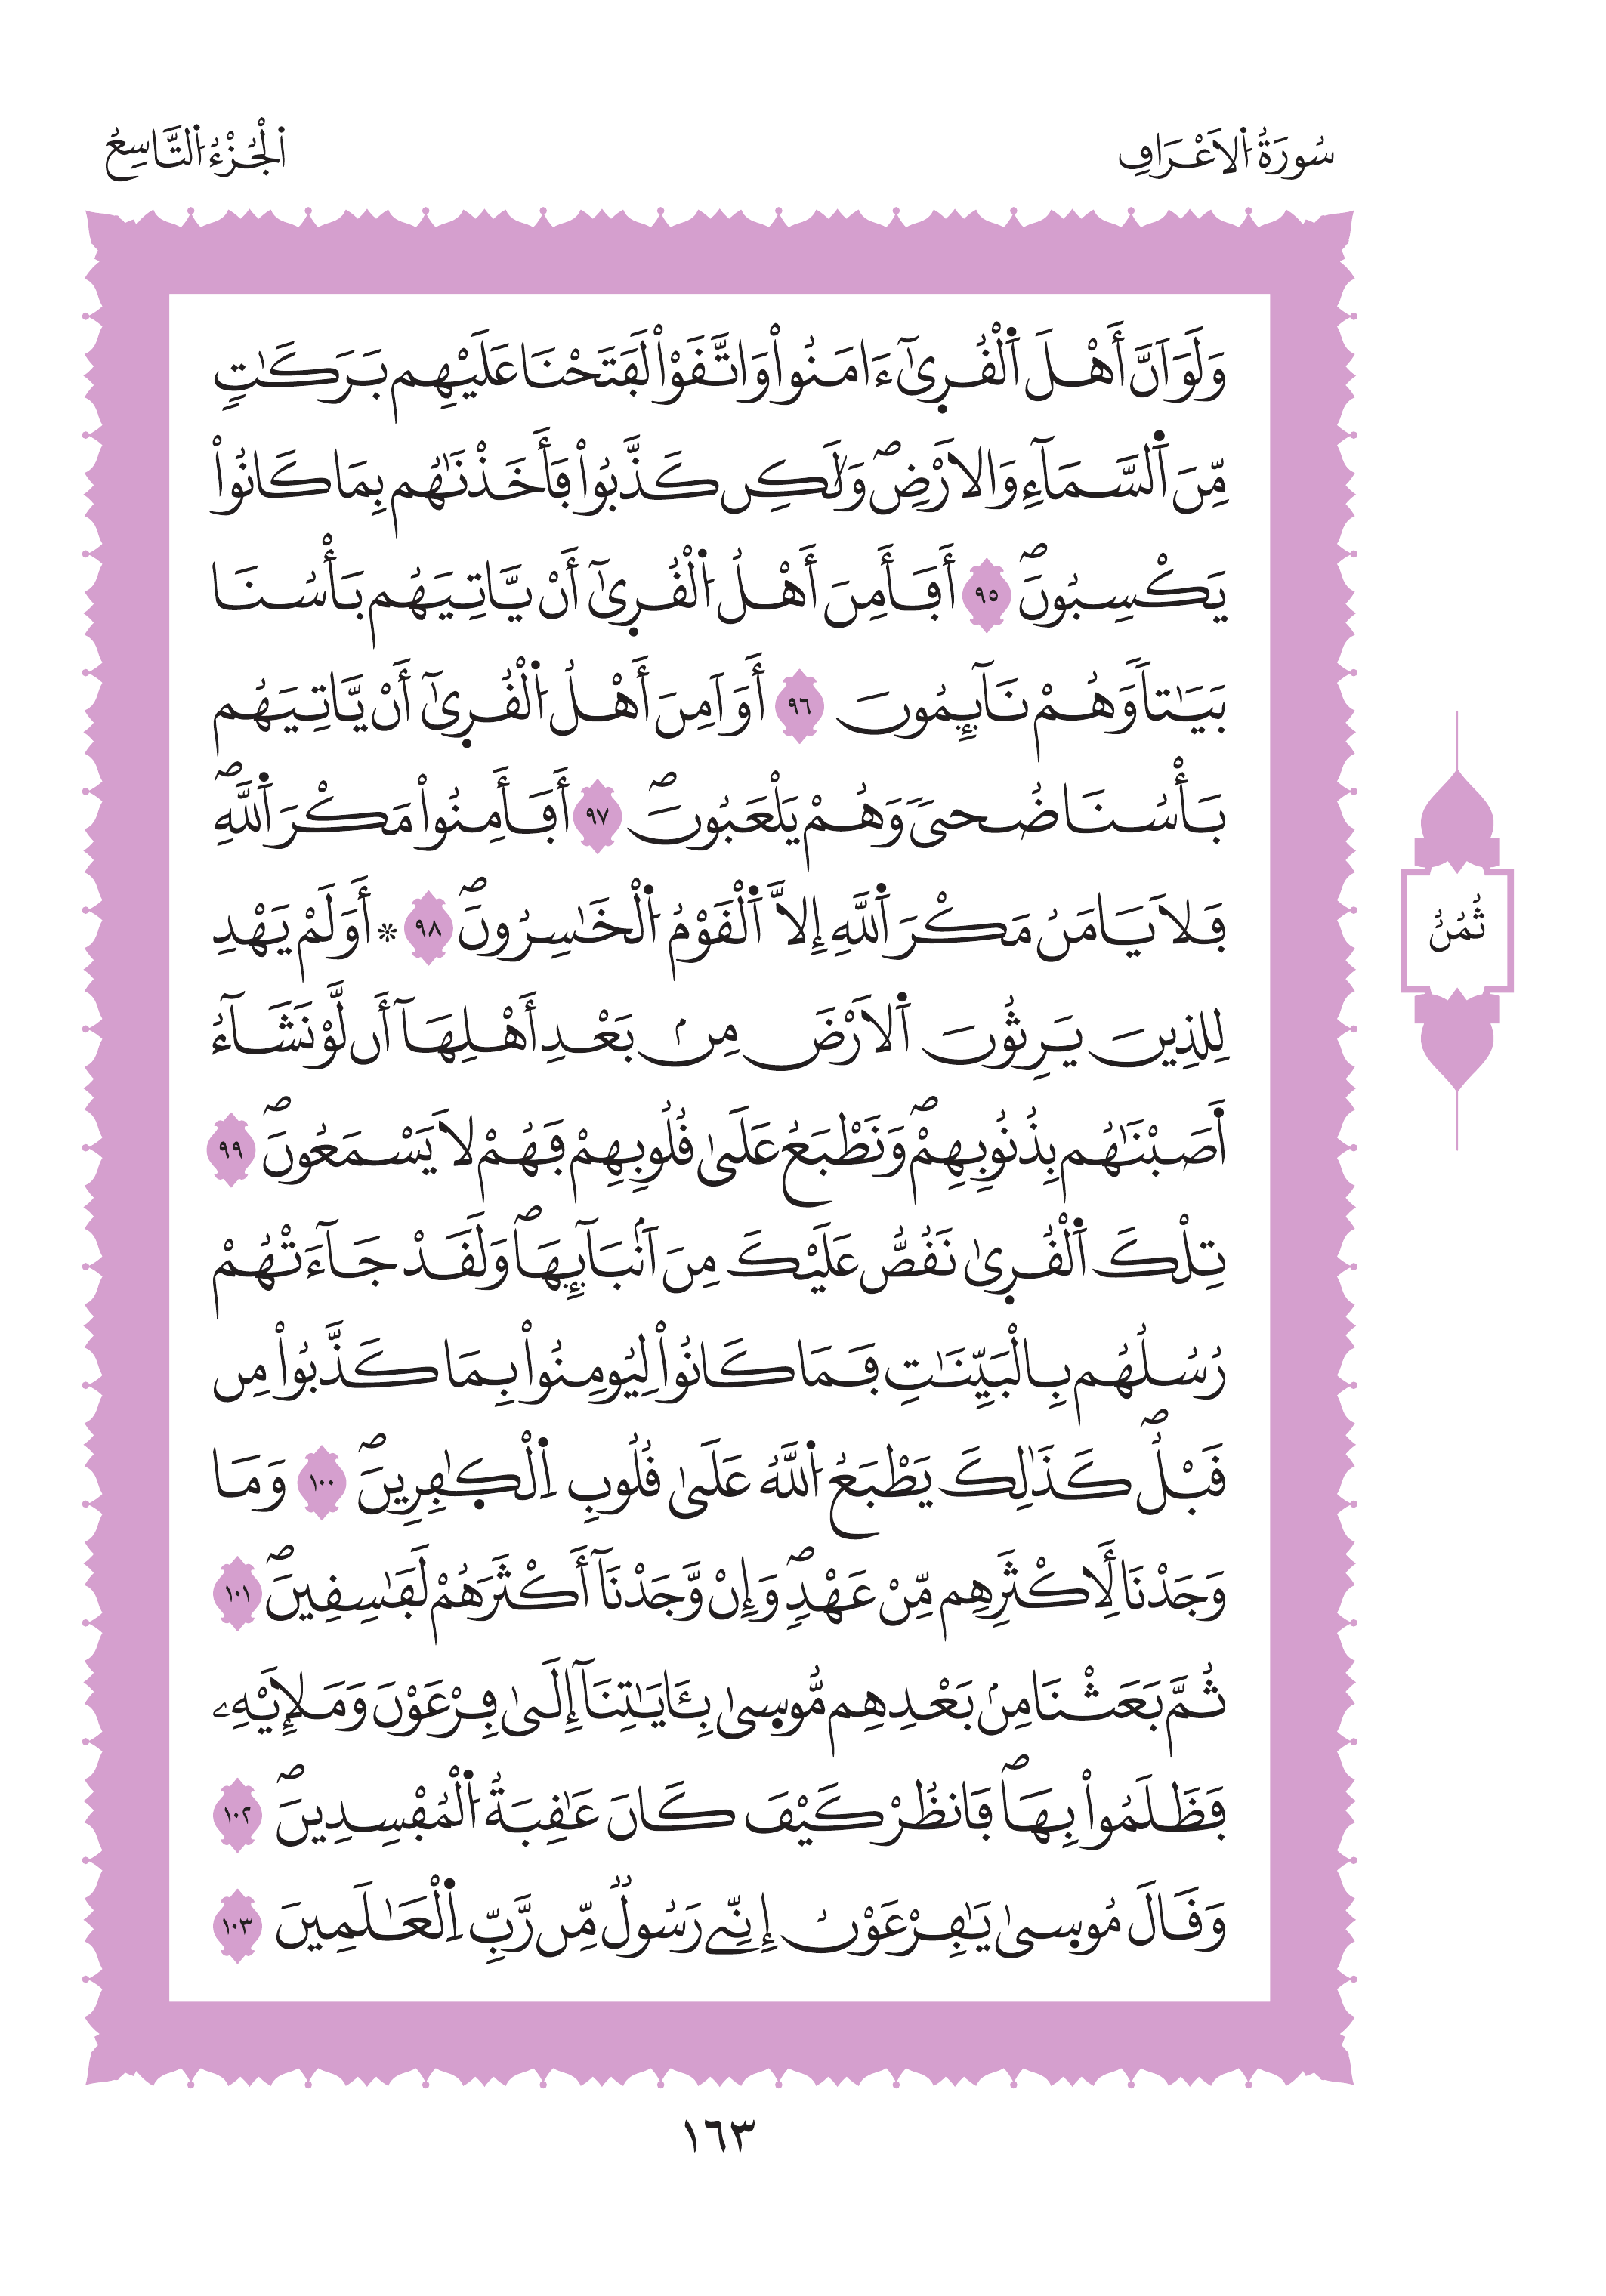 سُورَةُ اُ۬لَاعْرَافِ
اَ۬لْجُزْءُ اُ۬لتَّاسِعُ
وَلَوَ اَنَّ أَهْلَ اَ۬لْقُر۪ىٰٓ ءَامَنُواْ وَاتَّقَوْاْ لَفَتَحْنَا عَلَيْهِم بَرَكَٰتٖ
مِّنَ اَ۬لسَّمَآءِ وَالَارْضِۖ وَلَٰكِن كَذَّبُواْ فَأَخَذْنَٰهُم بِمَا كَانُواْ
يَكْسِبُونَۖ ٩٥ أَفَأَمِنَ أَهْلُ اُ۬لْقُر۪ىٰٓ أَنْ يَّاتِيَهُم بَأْسُنَا
بَيَٰتاٗ وَهُمْ نَآئِمُونَ ٩٦ أَوَ اَمِنَ أَهْلُ اُ۬لْقُر۪ىٰٓ أَنْ يَّاتِيَهُم
بَأْسُنَا ضُحىٗ وَهُمْ يَلْعَبُونَۖ ٩٧ أَفَأَمِنُواْ مَكْرَ اَ۬للَّهِۖ
فَلَا يَامَنُ مَكْرَ اَ۬للَّهِ إِلَّا اَ۬لْقَوْمُ اُ۬لْخَٰسِرُونَۖ ٩٨ ۞ أَوَلَمْ يَهْدِ
لِلذِينَ يَرِثُونَ اَ۬لَارْضَ مِنۢ بَعْدِ أَهْلِهَآ أَن لَّوْ نَشَآءُ
أَصَبْنَٰهُم بِذُنُوبِهِمْۖ وَنَطْبَعُ عَلَىٰ قُلُوبِهِمْ فَهُمْ لَا يَسْمَعُونَۖ ٩٩
تِلْكَ اَ۬لْقُر۪ىٰ نَقُصُّ عَلَيْكَ مِنَ اَنۢبَآئِهَاۖ وَلَقَدْ جَآءَتْهُمْ
رُسُلُهُم بِالْبَيِّنَٰتِ فَمَا كَانُواْ لِيُومِنُواْ بِمَا كَذَّبُواْ مِن
قَبْلُۖ كَذَٰلِكَ يَطْبَعُ اُ۬للَّهُ عَلَىٰ قُلُوبِ اِ۬لْكٰ۪فِرِينَۖ ١٠٠ وَمَا
وَجَدْنَا لِأَكْثَرِهِم مِّنْ عَهْدٖۖ وَإِنْ وَّجَدْنَآ أَكْثَرَهُمْ لَفَٰسِقِينَۖ ١٠١
ثُمَّ بَعَثْنَا مِنۢ بَعْدِهِم مُّوس۪ىٰ بِـَٔايَٰتِنَآ إِلَىٰ فِرْعَوْنَ وَمَلَإِيْهِۦ
فَظَلَمُواْ بِهَاۖ فَانظُرْ كَيْفَ كَانَ عَٰقِبَةُ اُ۬لْمُفْسِدِينَۖ ١٠٢
وَقَالَ مُوس۪ىٰ يَٰفِرْعَوْنُ إِنِّے رَسُولٞ مِّن رَّبِّ اِ۬لْعَٰلَمِينَ ١٠٣
ثُمُنُ
١٦٣